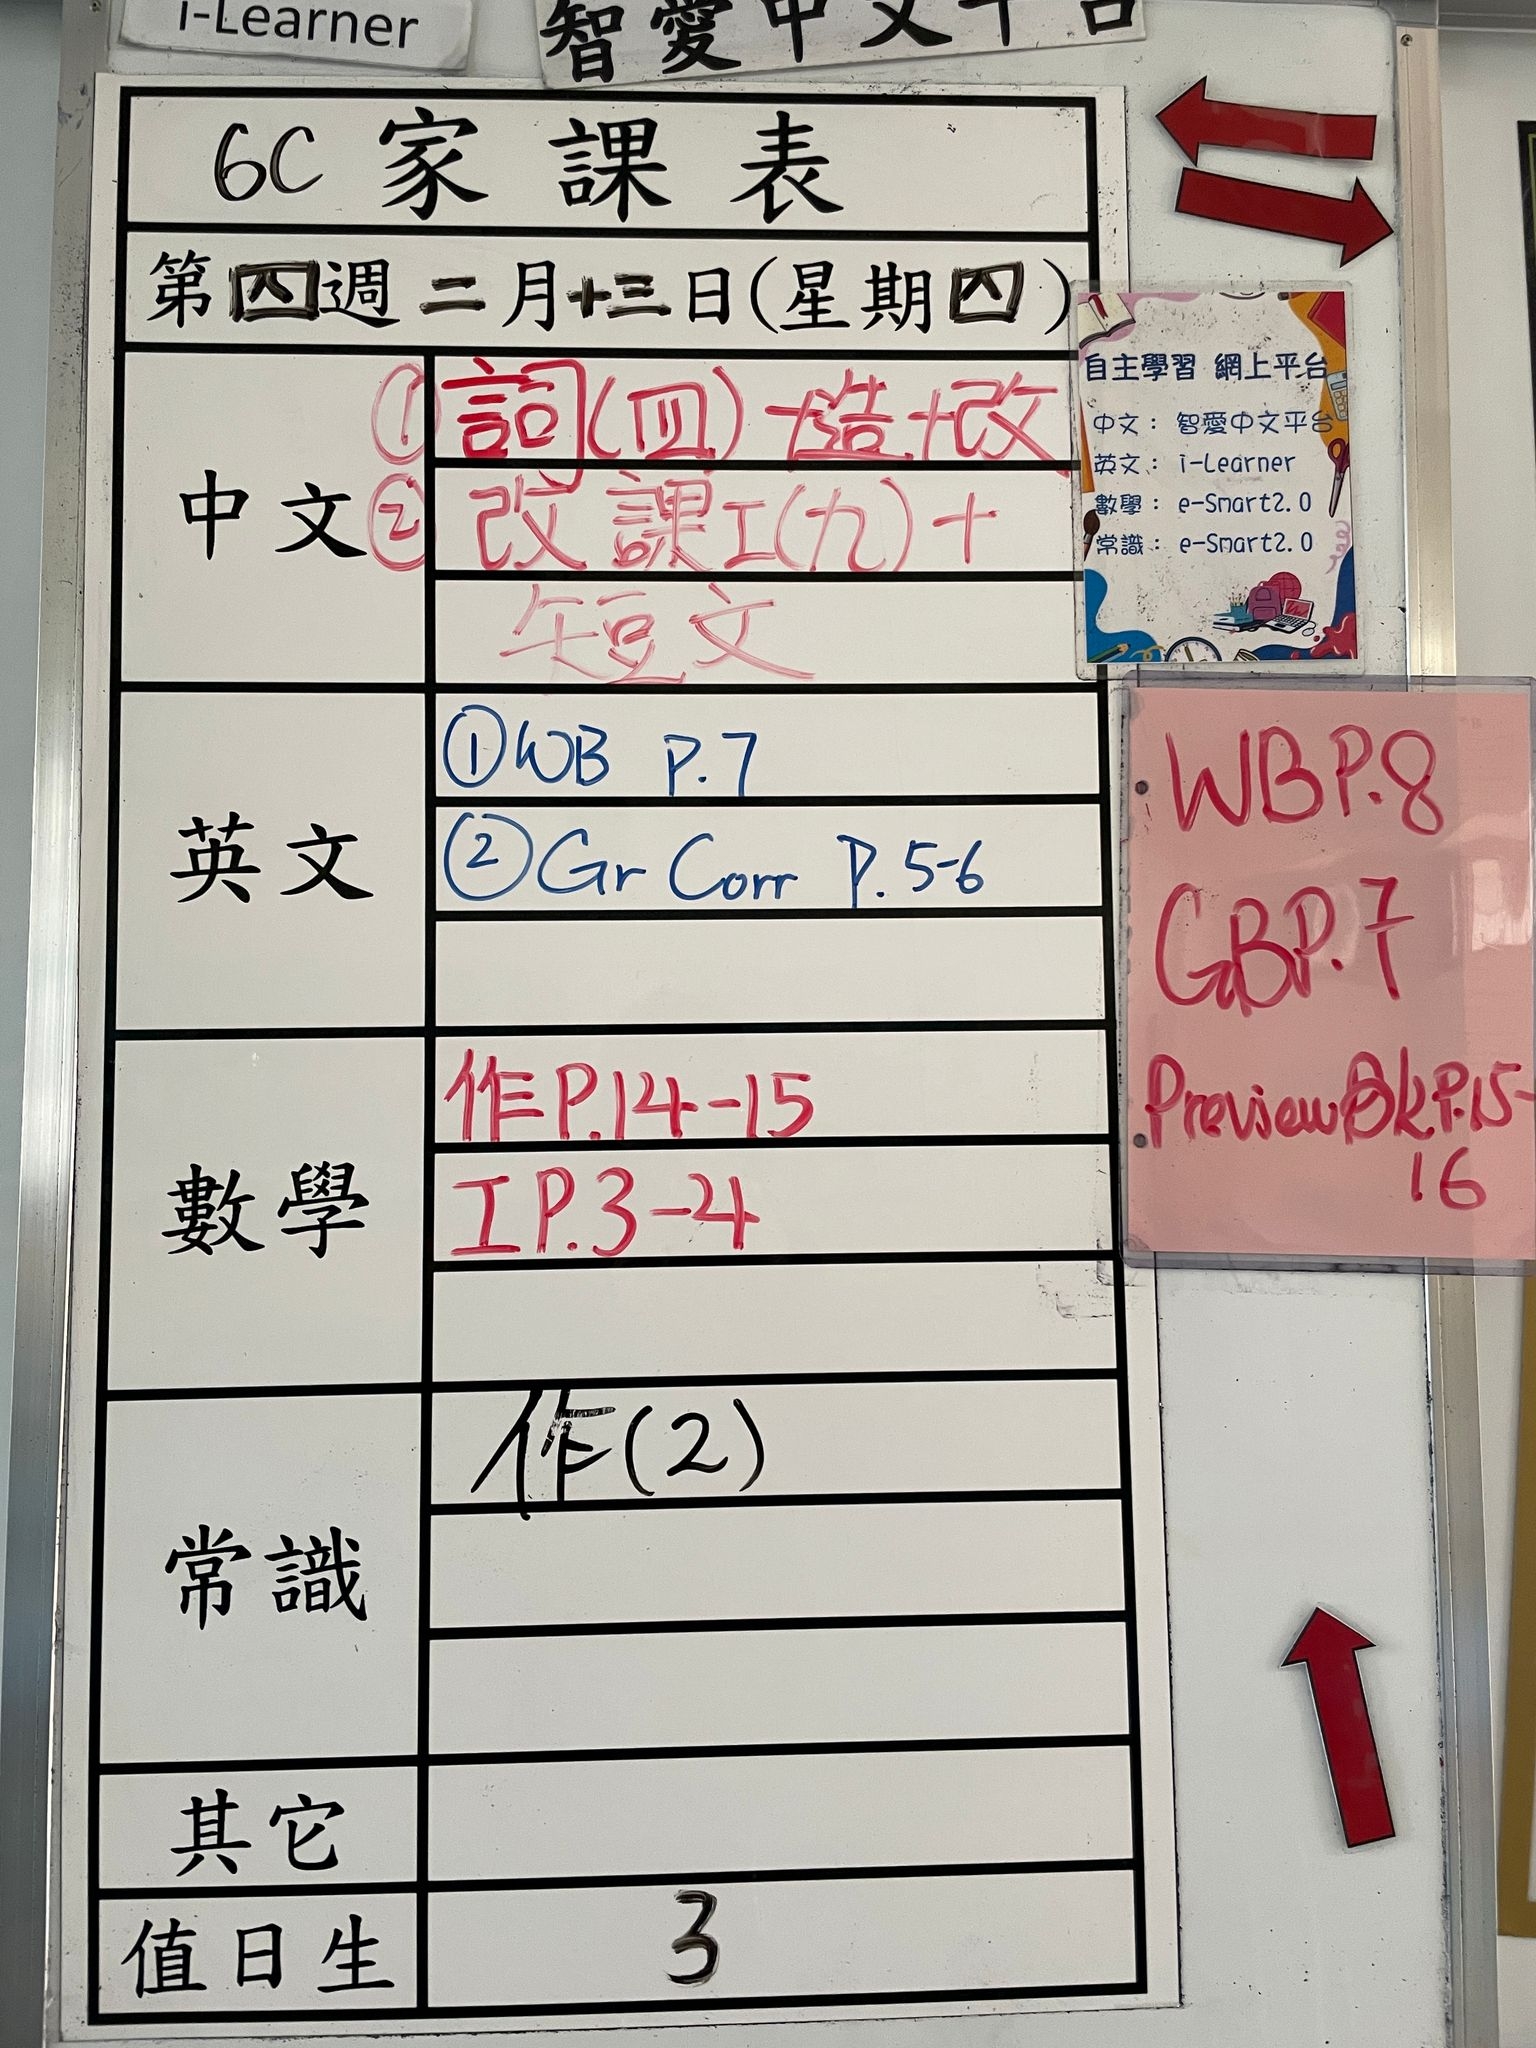 i-Learner
智愛中文平台
6C 家課表
第四週 二月十三日(星期四)
中文
① 詞(四)+造+改
② 改 課工(九)+
短文
英文
① WB P.7
② Gr Corr P.5-6
數學
作P.14-15
工P.3-4
常識
作(2)
其它
值日生
3
自主學習 網上平台
中文: 智愛中文平台
英文: i-Learner
數學: e-Smart2.0
常識: e-Smart2.0
WBP.8
GBP.7
PreviewBkP.15-
16